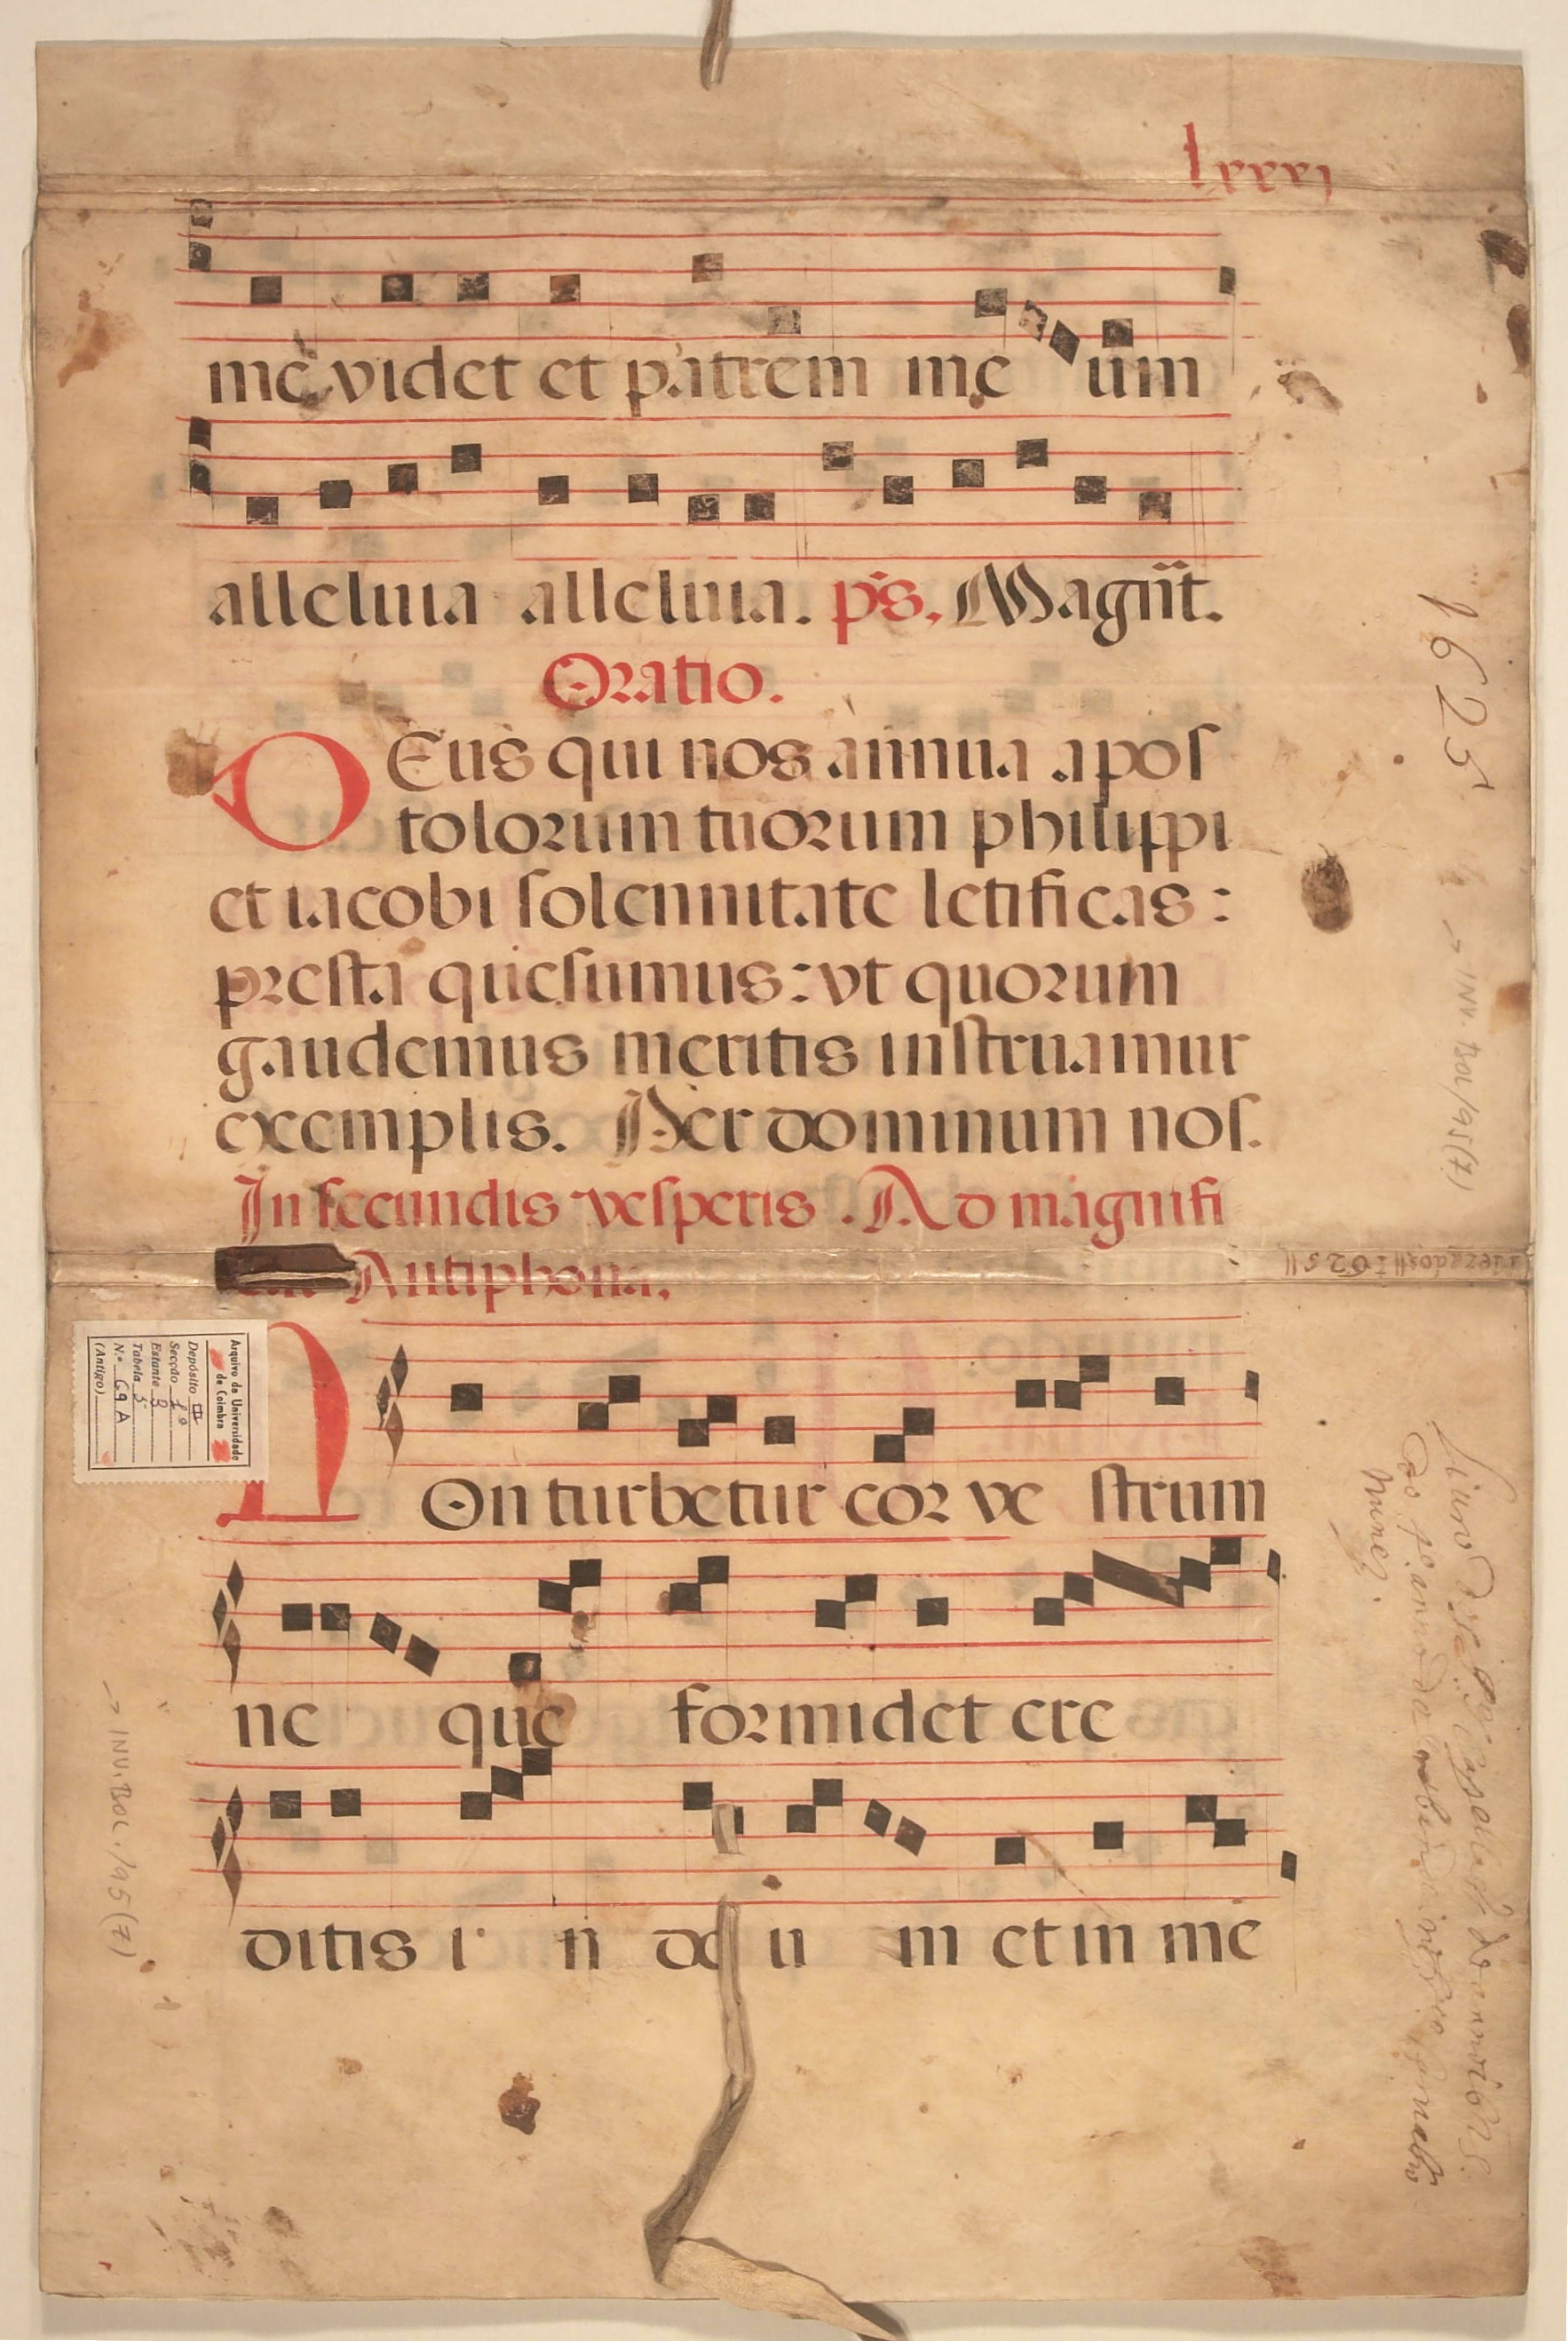 lxxxj
me videt et patrem me um
alleluia alleluia. p̄s. Magn̄t.
Oratio.
DEus qui nos annua apos
tolorum tuorum philippi
et iacobi solennitate letificas:
presta quesumus: vt quorum
gaudemus meritis instruamur
exemplis. Per dominum nos.
In secundis vesperis. Ad magnifi
Antiphona.
NOn turbetur cor ve strum
ne que formidet cre
ditis i n de u m et in me
1625
→ INV. BOL./95(7)
1625
Arquivo da Universidade
de Coimbra
Depósito III
Secção 1ª
Estante 3
Tabela 5
N.º 69 A
(Antigo)
→ INV. BOL./95(7)
Nunez.